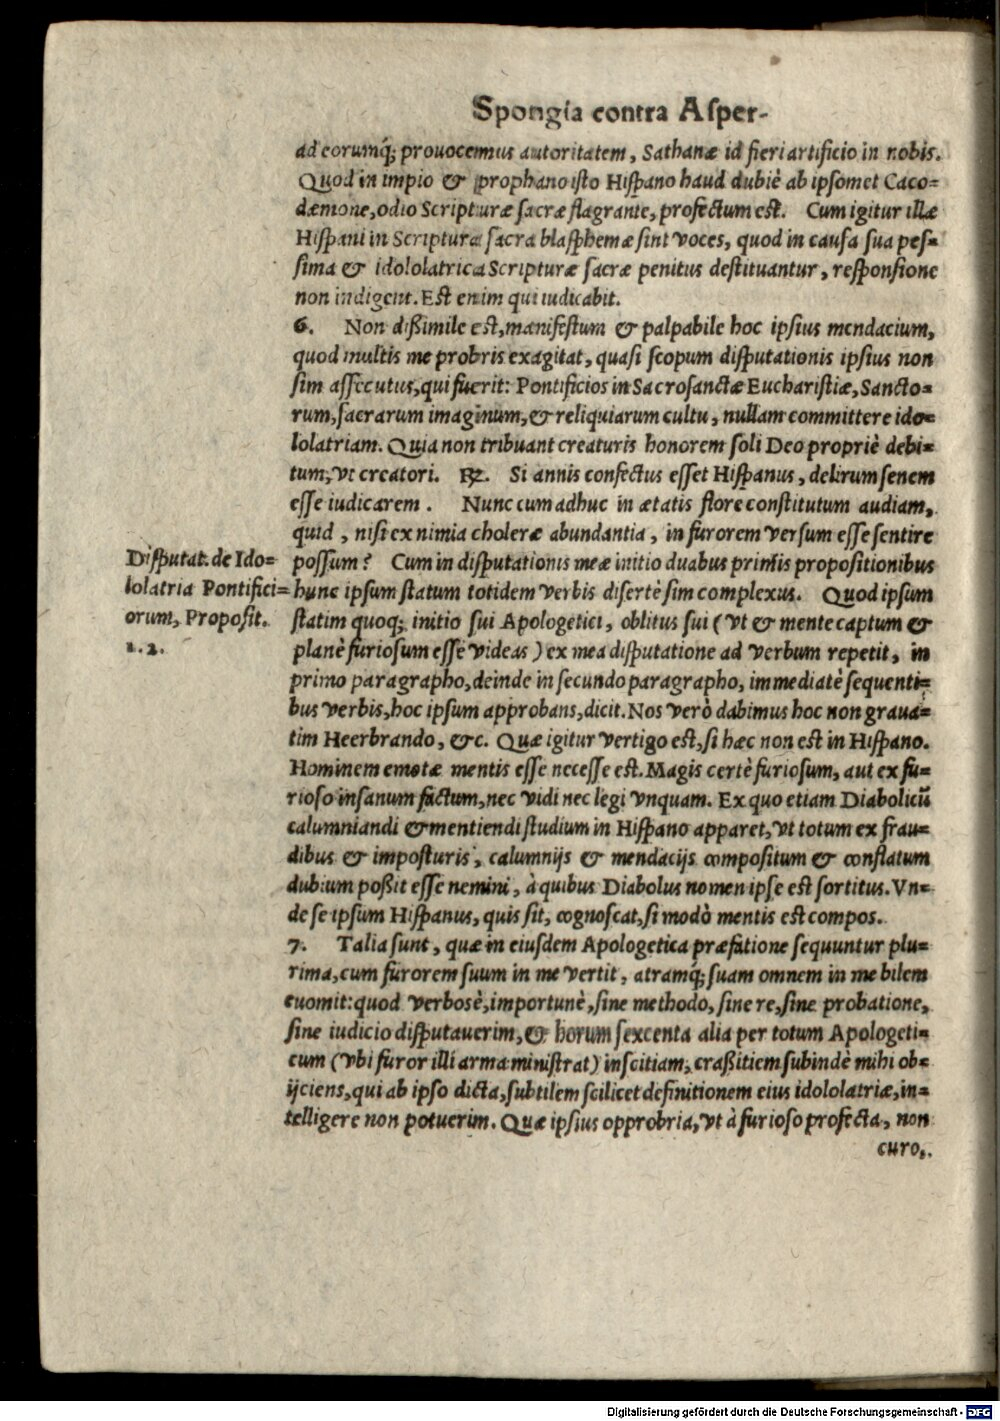 Spongia contra Asper-
ad eorumq́; prouocemus autoritatem, Sathanæ id fieri artificio in nobis.
Quod in impio & prophano isto Hispano haud dubiè ab ipsomet Caco=
dæmone, odio Scripturæ sacræ flagrante, profectum est. Cum igitur illæ
Hispani in Scriptura sacra blasphemæ sint voces, quod in causa sua pes=
sima & idololatrica Scripturæ sacræ penitus destituantur, responsione
non indigent. Est enim qui iudicabit.
6. Non dißimile est, manifestum & palpabile hoc ipsius mendacium,
quod multis me probris exagitat, quasi scopum disputationis ipsius non
sim assecutus, qui fuerit: Pontificios in Sacrosanctæ Eucharistiæ, Sancto=
rum, sacrarum imaginum, & reliquiarum cultu, nullam committere ido=
lolatriam. Quia non tribuant creaturis honorem soli Deo propriè debi=
tum, vt creatori. ℞. Si annis confectus esset Hispanus, delirum senem
esse iudicarem. Nunc cum adhuc in ætatis flore constitutum audiam,
quid, nisi ex nimia choleræ abundantia, in furorem versum esse sentire
possum? Cum in disputationis meæ initio duabus primis propositionibus
hunc ipsum statum totidem verbis disertè sim complexus. Quod ipsum
statim quoq; initio sui Apologetici, oblitus sui (vt & mente captum &
planè furiosum esse videas) ex mea disputatione ad verbum repetit, in
primo paragrapho, deinde in secundo paragrapho, immediatè sequenti=
bus verbis, hoc ipsum approbans, dicit. Nos verò dabimus hoc non graua=
tim Heerbrando, &c. Quæ igitur vertigo est, si hæc non est in Hispano.
Hominem emotæ mentis esse necesse est. Magis certè furiosum, aut ex fu=
rioso insanum factum, nec vidi nec legi vnquam. Ex quo etiam Diabolicũ
calumniandi & mentiendi studium in Hispano apparet, vt totum ex frau=
dibus & imposturis, calumnijs & mendacijs compositum & conflatum
dubium poßit esse nemini, à quibus Diabolus nomen ipse est sortitus. Vn=
de se ipsum Hispanus, quis sit, cognoscat, si modò mentis est compos.
7. Talia sunt, quæ in eiusdem Apologetica præfatione sequuntur plu=
rima, cum furorem suum in me vertit, atramq́; suam omnem in me bilem
euomit: quod verbosè, importunè, sine methodo, sine re, sine probatione,
sine iudicio disputauerim, & horum sexcenta alia per totum Apologeti=
cum (vbi furor illi arma ministrat) inscitiam, craßitiem subindè mihi ob=
ijciens, qui ab ipso dicta, subtilem scilicet definitionem eius idololatriæ, in=
telligere non potuerim. Quæ ipsius opprobria, vt à furioso profecta, non
curo,
Disputat. de Ido=
lolatria Pontifici=
orum, Proposit.
1. 2.
Digitalisierung gefördert durch die Deutsche Forschungsgemeinschaft - DFG